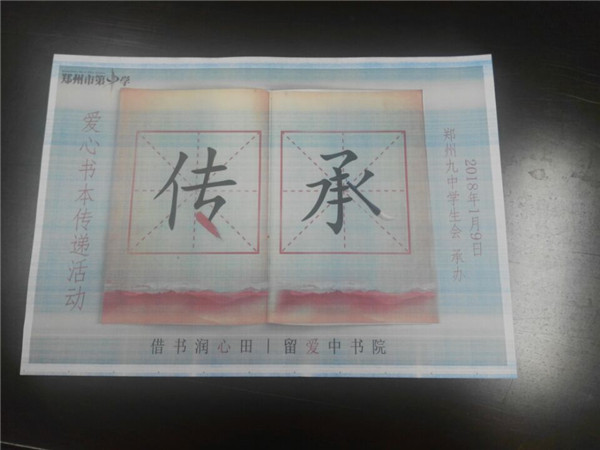 郑州市第中学
爱心书本传递活动
传承
2018年1月9日
郑州九中学生会 承办
借书润心田丨留爱中书院